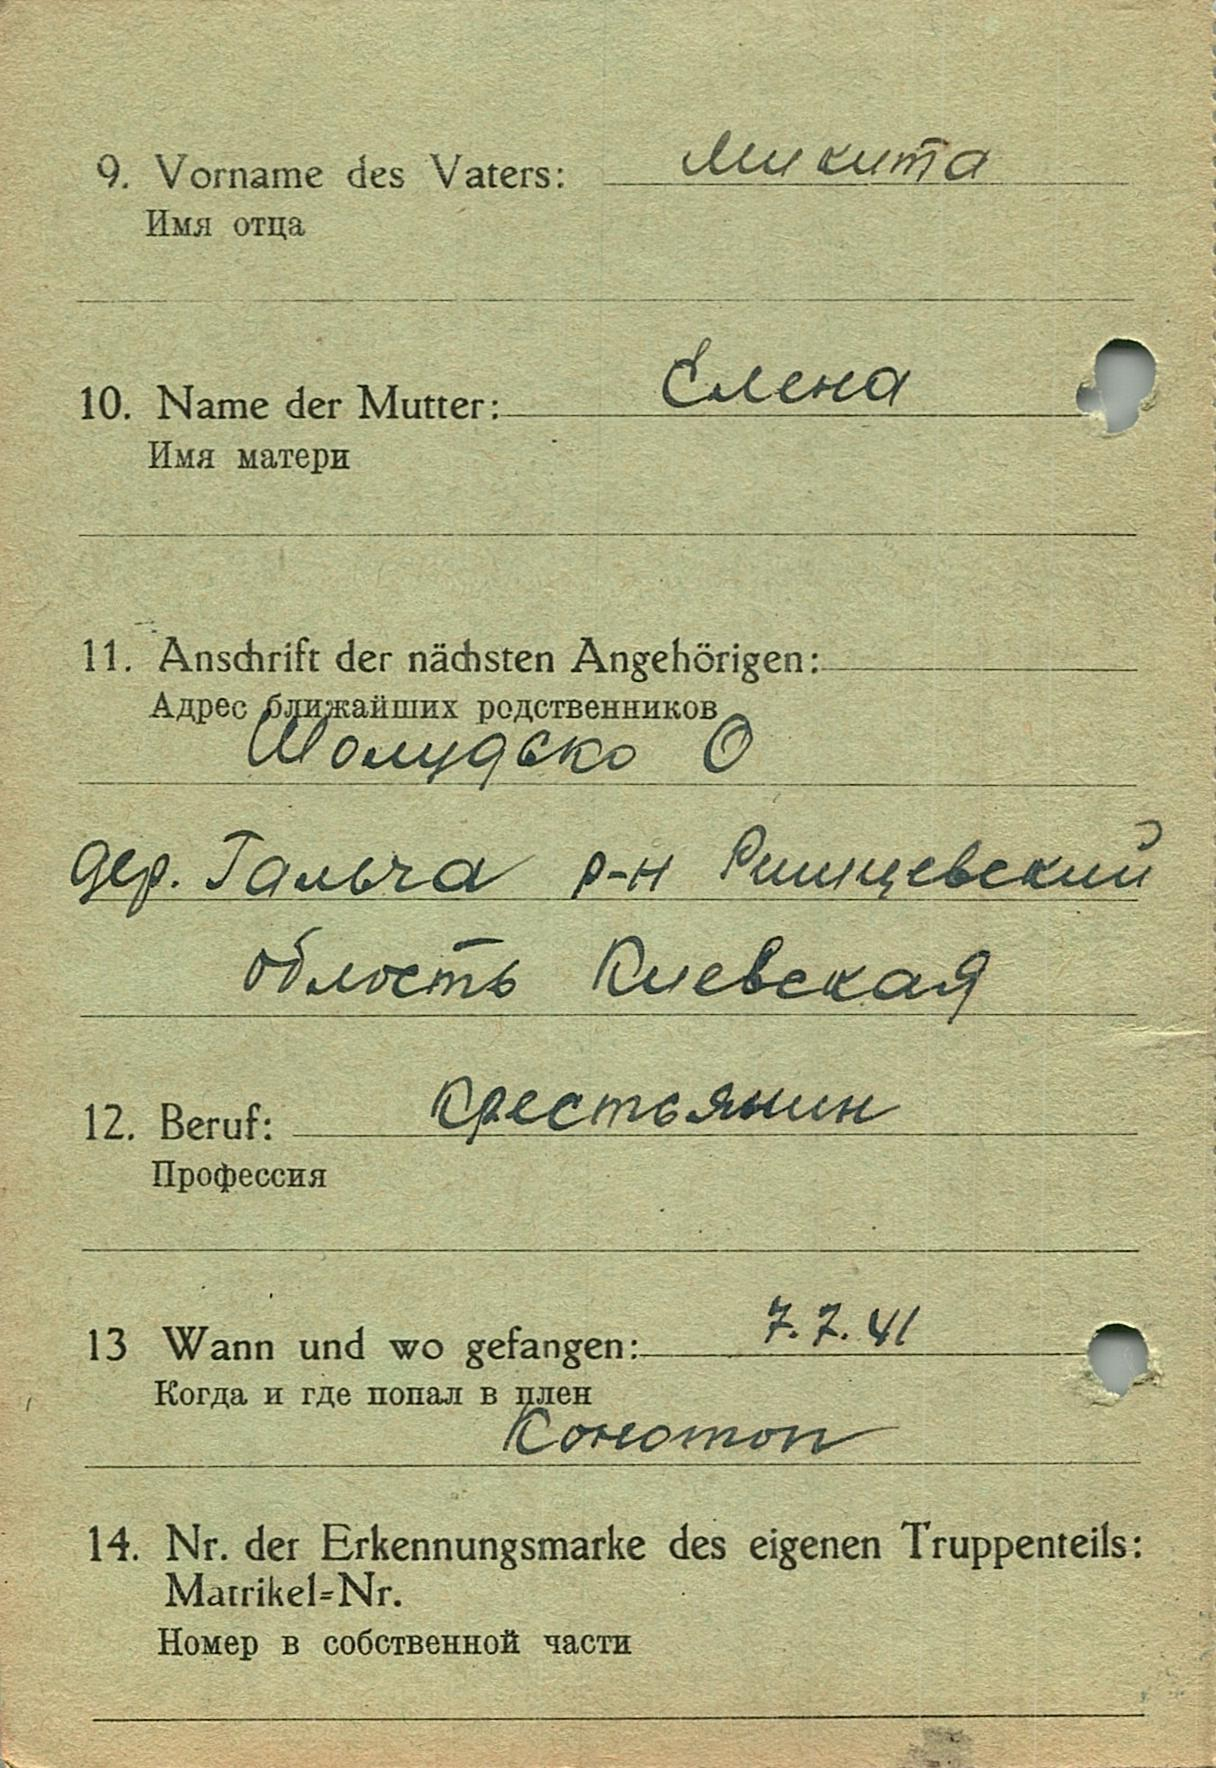 9. Vorname des Vaters: Микита
Имя отца
10. Name der Mutter: Елена
Имя матери
11. Anschrift der nächsten Angehörigen:
Адрес ближайших родственников
Шолудько О
дер. Гальча р-н Ришцевский
область Киевская
12. Beruf: Крестьянин
Профессия
13 Wann und wo gefangen: 7.7.41
Когда и где попал в плен
Конотоп
14. Nr. der Erkennungsmarke des eigenen Truppenteils:
Matrikel=Nr.
Номер в собственной части